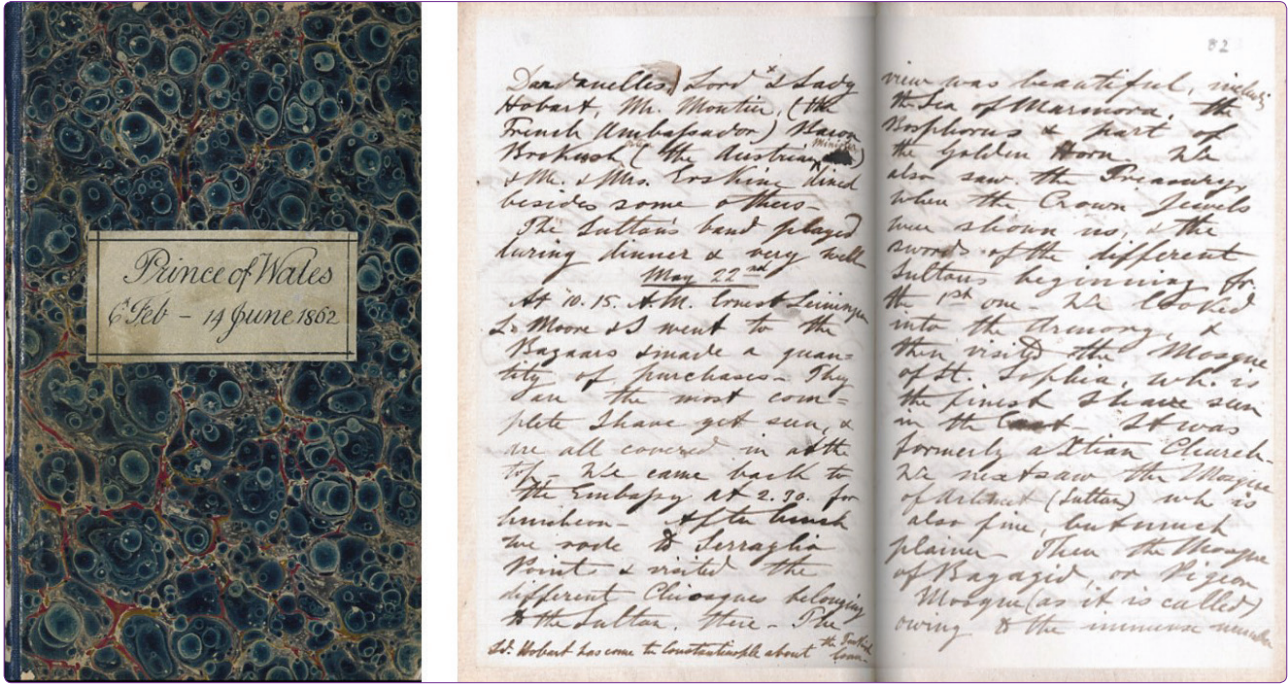 Prince of Wales
6 Feb – 14 June 1862
Dardanelles. Lord x & Lady
Hobart, Mr. Moutier, (the
French Ambassador) Baron
(the Austrian minister)
& Mr. & Mrs. Erskine dined
besides some others –
The Sultan's band played
during dinner & very well
May 22nd
At 10.15. A.M. Ernest Leiningen
Moore & I went to the
Bazaars & made a quan=
tity of purchases – They
are the most com=
plete I have yet seen, &
are all covered in at the
top – We came back to
the Embassy at 2.30. for
luncheon – After lunch
we rode to Serraglio
Point & visited the
different belonging
to the Sultan, there – The
x Ld. Hobart has come to Constantinople about the Turkish
82
view was beautiful,
the Sea of Marmora, the
Bosphorus & part of
the Golden Horn – We
also saw the Treasury,
where the Crown Jewels
were shown us, & the
swords of the different
Sultans beginning fr.
the 1st one – We looked
into the Armoury, &
then visited the Mosque
of St. Sophia, wh. is
the finest I have seen
in the East – It was
formerly a Xtian Church –
We next saw the Mosque
of (Sultan) wh is
also fine, but much
plainer – Then the Mosque
of Bagazid, or Pigeon
Mosque (as it is called)
owing to the immense number